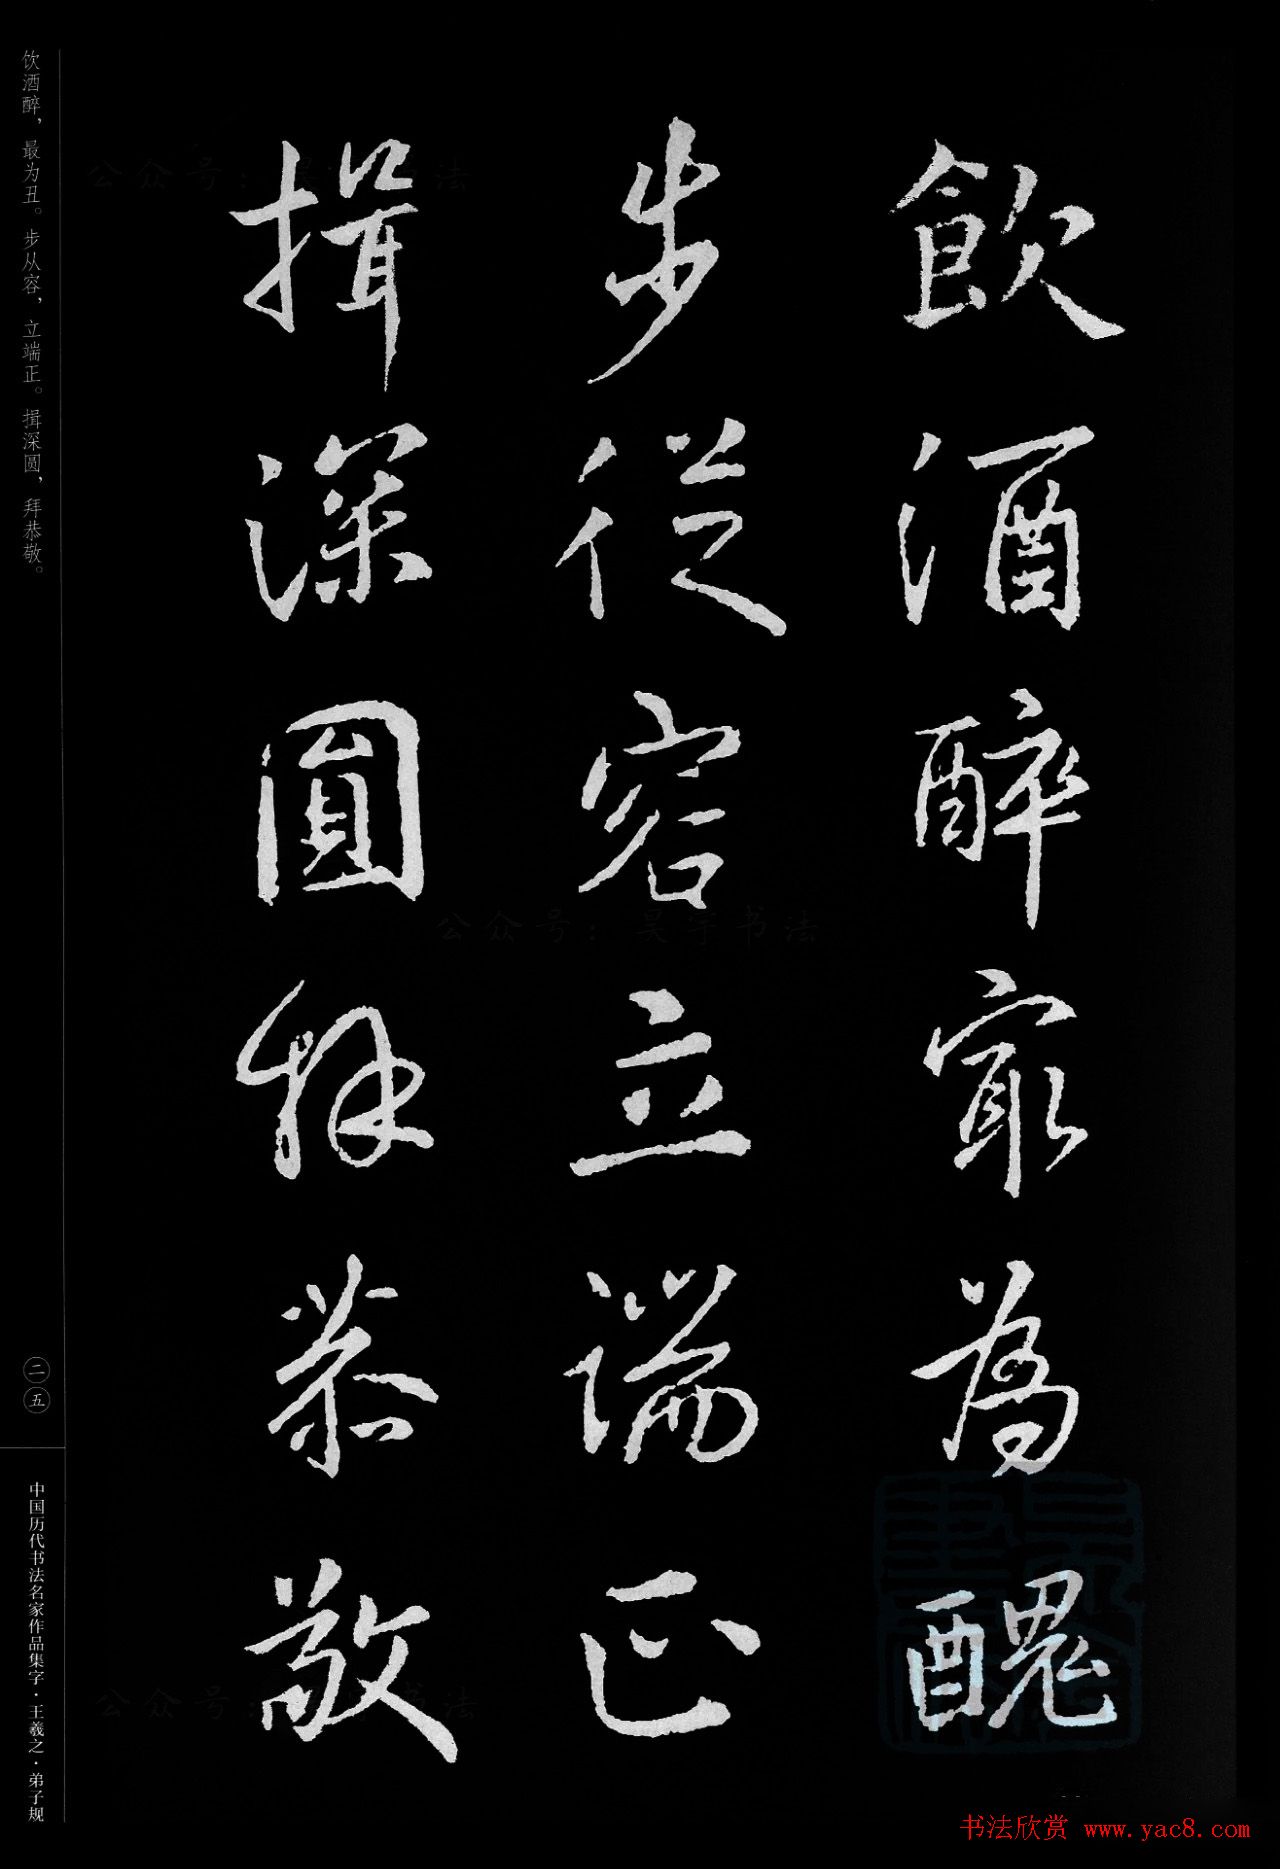 飲酒醉寂為醜
步從容立端正
揖深圓拜恭敬
饮酒醉，最为丑。步从容，立端正。揖深圆，拜恭敬。
二五
中国历代书法名家作品集字·王羲之·弟子规
公众号：昊宇书法
书法欣赏 www.yac8.com